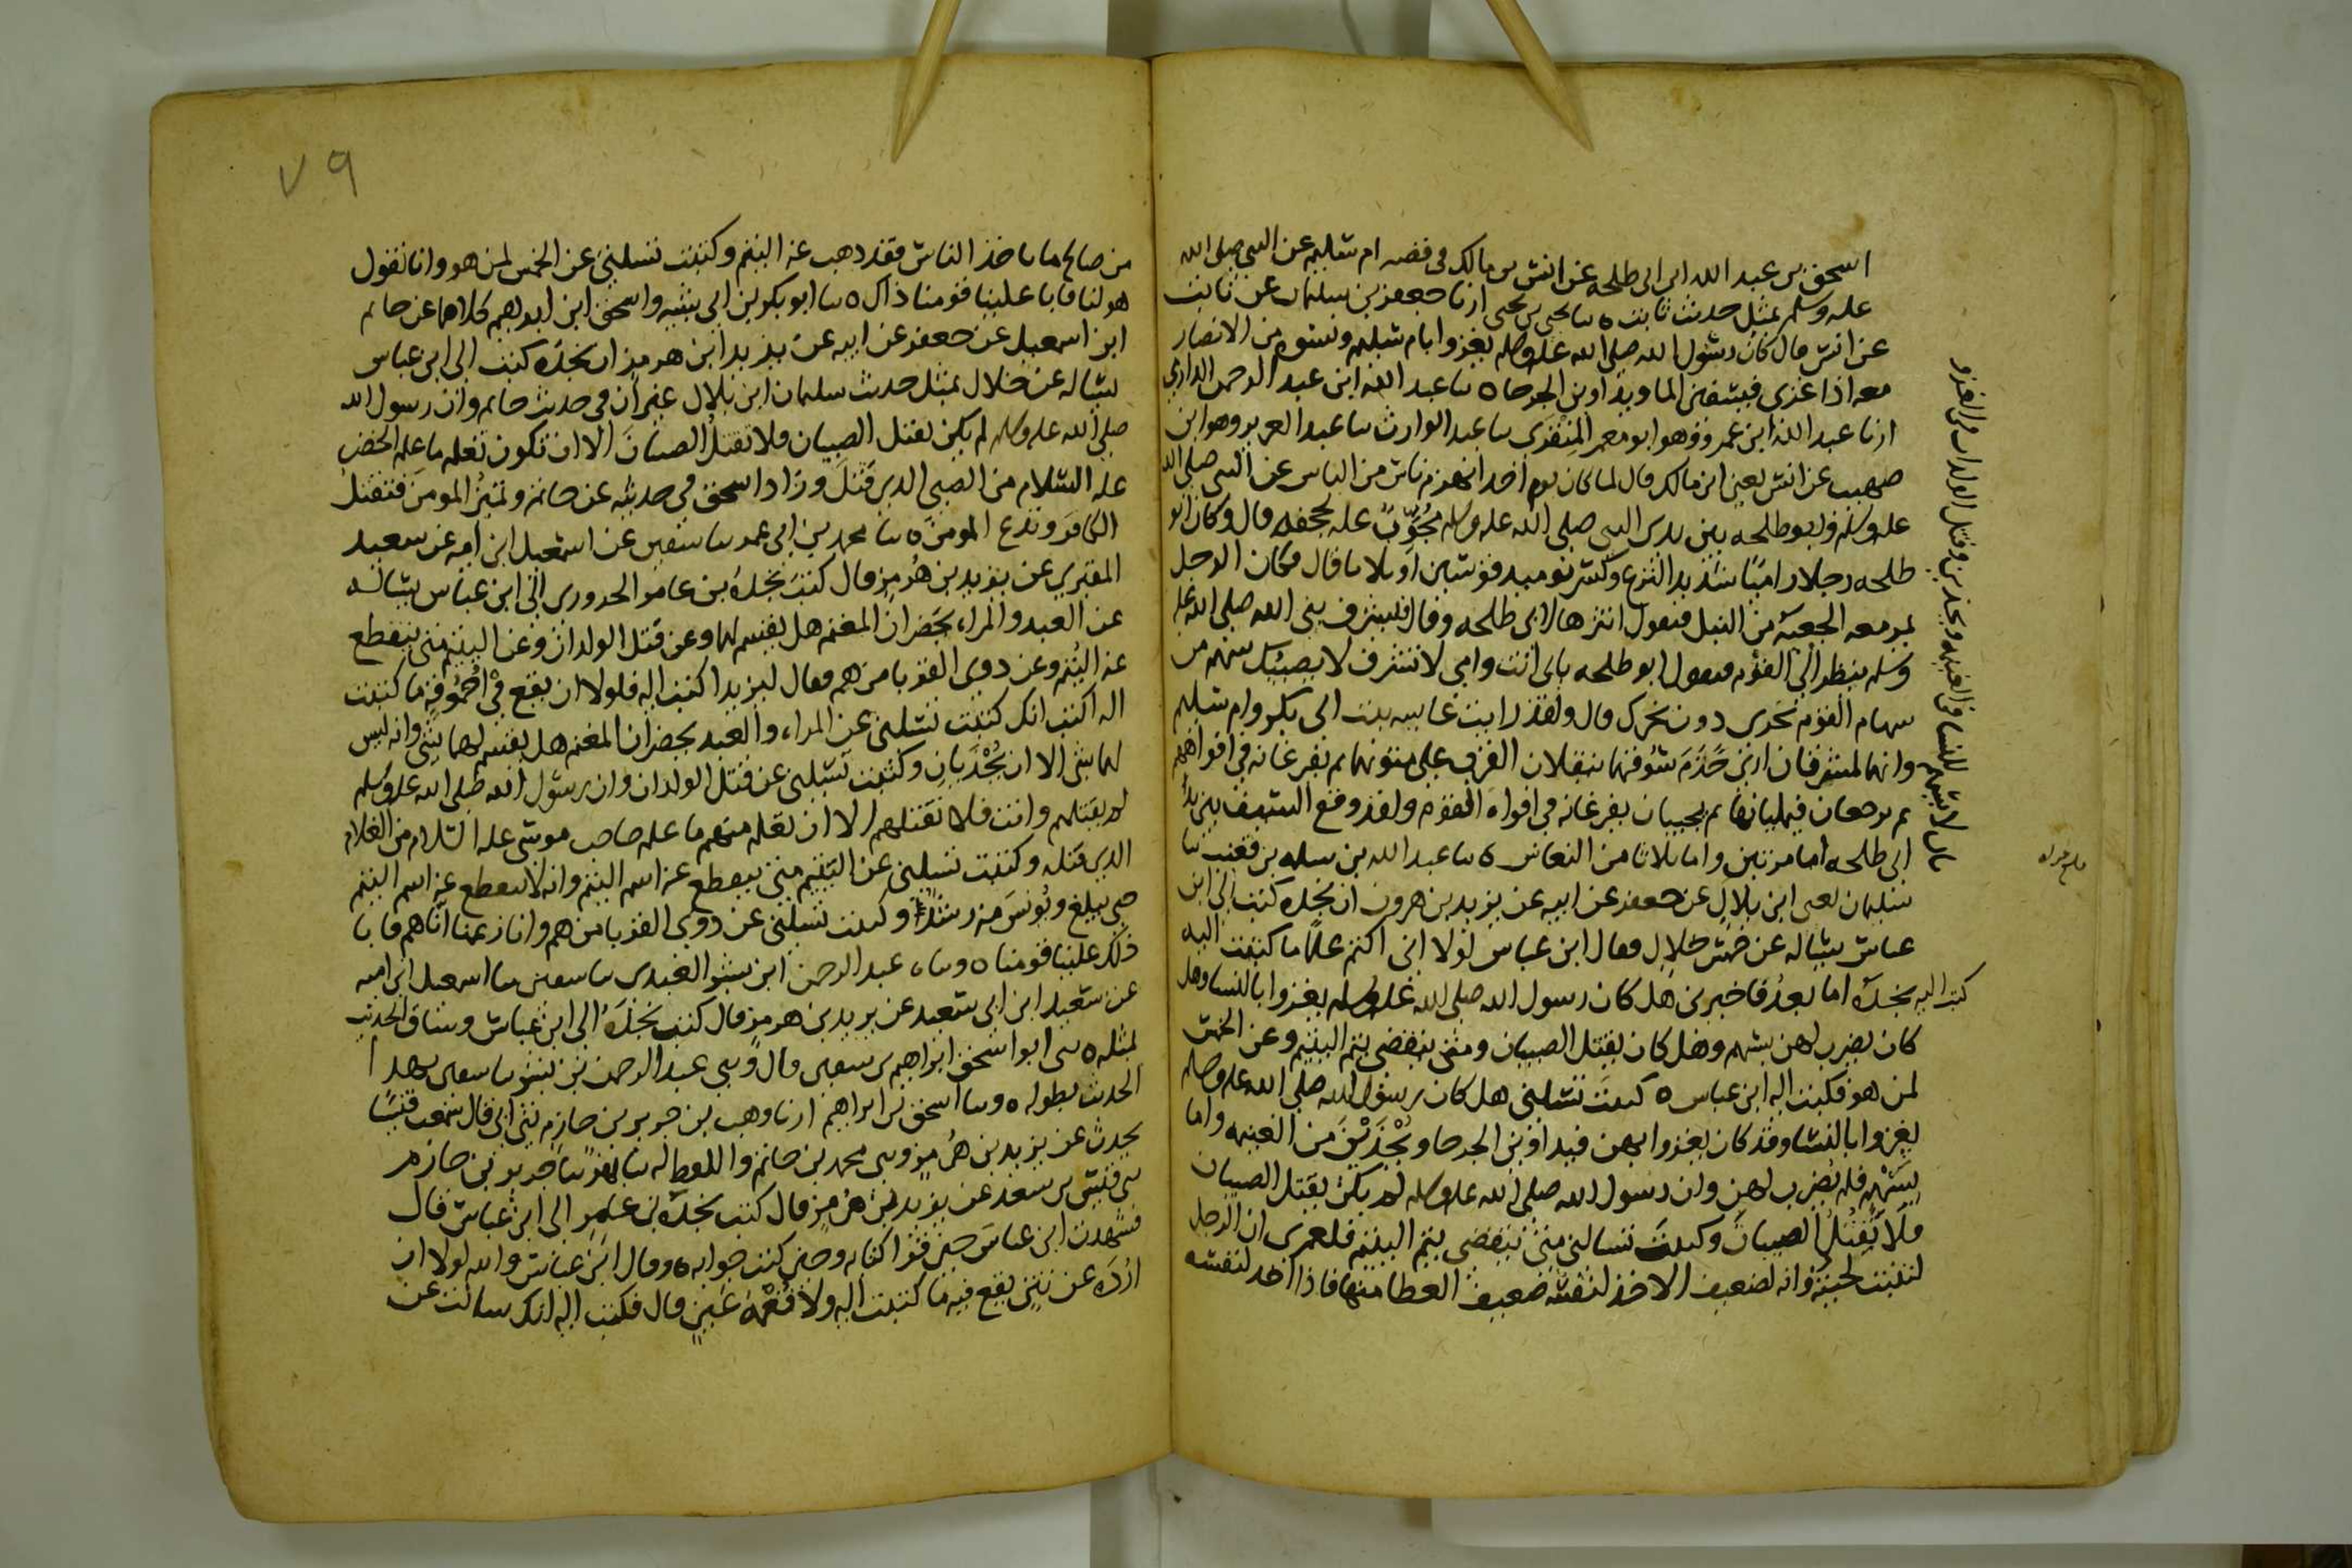 اسحق بن عبد الله ابن ابى طلحه عن انس بن مالك فى قصه ام سليم عن النبى صلى الله
عليه وسلم بمثل حديث ثابت ٥ ثنا يحيى بن يحيى ارنا جعفر بن سليمان عن ثابت
عن انس قال كان رسول الله صلى الله عليه وسلم يغزوا بام سليم ونسوه من الانصار
معه اذا غزى فيسقين الما ويداوين الجرحا ٥ ثنا عبد الله ابن عبد الرحمن الدارمي
ارنا عبد الله ابن عمرو وهو ابو معمر المنقرى ثنا عبد الوارث ثنا عبد العزيز وهو ابن
صهيب عن انس يعنى ابن مالك قال لما كان يوم احد انهزم ناس من الناس عن النبى صلى الله
عليه وسلم وابو طلحه بين يدى النبى صلى الله عليه وسلم مُجَوِّبٌ عليه بحجفه قال وكان ابو
طلحه رجلا راميًا شديد النزع وكسر يوميد قوسين او ثلاثا قال فكان الرجل
يمر معه الجعبة من النبل فيقول انثرها لابى طلحه وقال فيشرف نبى الله صلى الله عليه
وسلم ينظر الى القوم فيقول ابو طلحه بابى انت وامى لا تشرف لا يصيبك سهم من
سهام القوم نحرى دون نحرك قال ولقد رايت عايشه بنت ابى بكر وام سليم
وانهما لمشمرتان ارى خَدَمَ سُوقهما ينقلان القرب على متونهما ثم يفرغانه فى افواههم
ثم يرجعان فيملانها ثم يجيبان يفرغانه فى افواه القوم ولقد وقع السيف من يد
ابى طلحه اما مرتين واما ثلاثا من النعاس ٥ ثنا عبد الله بن مسلمه بن قعنب ثنا
سليمان يعنى ابن بلال عن جعفر عن ابيه عن يزيد بن هرمز ان نجده كتب الى ابن
عباس يساله عن خمس خلال فقال ابن عباس لولا انى اكتم علمًا ما كتبت اليه
كتب اليه نجدة اما بعدُ فاخبرنى هل كان رسول الله صلى الله عليه وسلم يغزوا بالنسا وهل
كان يضرب لهن بسهم وهل كان يقتل الصبيان ومتى ينقضى يتم اليتيم وعن الخمس
لمن هو فكتب اليه ابن عباس ٥ كتبتَ تسلنى هل كان رسول الله صلى الله عليه وسلم
يغزوا بالنسا وقد كان يغزوا بهن فيداوين الجرحا ويُحْذَيْنَ من الغنيمه واما
بِسَهْمٍ فلم يضرب لهن وان رسول الله صلى الله عليه وسلم لم يكن يقتل الصبيان
فلا تَقتُل الصبيانَ وكتبتَ تسالنى متى ينقضى يتم اليتيم فلعمرى ان الرجل
لتنبت لحيته وانه لضعيف الاخذ لنفسه ضعيف العطا منها فاذا اخذ لنفسه
باب لا يسهم للنسا من الغنيمه ويحذين وقتل الولدان فى الغزو
٧٩
من صالح ما ياخذ الناس فقد ذهب عنه اليتم وكتبت تسلنى عن الخمس لمن هو وانا نقول
هو لنا فابا علينا قومنا ذاك ٥ ثنا ابو بكر بن ابى شيبه واسحق ابن ابرهيم كلاهما عن حاتم
ابن اسمعيل عن جعفر عن ابيه عن يزيد ابن هرمز ان نجدة كتب الى ابن عباس
يساله عن خلال بمثل حديث سليمان ابن بلال غير ان فى حديث حاتم وان رسول الله
صلى الله عليه وسلم لم يكن يقتل الصبيان فلا تقتلُ الصبيانَ الا ان تكون تعلم ما علم الخضر
عليه السلام من الصبى الذى قَتَلَ وزاد اسحق فى حديثه عن حاتم وتميزُ المومنَ فتقتل
الكافرَ وتدع المومنَ ٥ ثنا محمد بن ابى عمر ثنا سفين عن اسمعيل ابن اميه عن سعيد
المقبرى عن يزيد بن هُرمز قال كتبَ نجدةُ بن عامر الحرورى الى ابن عباس يساله
عن العبد والمراه يَحضرانِ المغنم هل يقسم لهما وعن قتل الولدان وعن اليتيم متى ينقطع
عنه اليُتم وعن ذوى القربا من هم فقال ليزيد اكتب اليه فلولا ان يقع فى اُحمُوقةٍ ما كتبت
اليه اكتب انك كتبت تسلنى عن المراه والعبد يحضران المغنم هل يقسم لهما شى وانه ليس
لهما شى الا ان يُحْذَيَانِ وكتبت تسلنى عن قتل الولدان وان رسول الله صلى الله عليه وسلم
لم يقتلهم وانت فلا تقتلهم الا ان تعلم منهم ما علم صاحب موسى عليه السلام من الغلام
الذى قتله وكتبت تسلنى عن اليتيم متى ينقطع عنه اسم اليتم وانه لا ينقطع عنه اسم اليتم
حتى يبلغ ويُونسَ منه رشدًا وكتبت تسلنى عن ذوى القربا من هم وانا زعمنا انّا هم فابا
ذلك علينا قومنا ٥ وثناه عبد الرحمن ابن بشر العبدى ثنا سفين ثنا اسمعيل ابن اميه
عن سعيد ابن ابى سعيد عن يزيد بن هرمز قال كتب نجدَةُ الى ابن عباس وساق الحديث
بمثله ٥ ثنى ابو اسحق ابراهيم ثنا سفين قال وثنى عبد الرحمن بن بشر ثنا سفين بهذا
الحديث بطوله ٥ وثنا اسحق بن ابراهيم ارنا وهب بن جرير بن حازم ثنى ابى قال سمعت قيسًا
يحدث عن يزيد بن هُرمز وثنى محمد بن حاتم واللفظ له ثنا بهز ثنا جرير بن حازم
ثنى قيس بن سعد عن يزيد بن هرمز قال كتب نجدة بن عامر الى ابن عباس قال
فشهدت ابن عباسَ حين قرا كتابه وحين كتب جوابه ٥ وقال ابن عباس والله لولا ان
اردَه عن نتنٍ يقع فيه ما كتبت اليه ولا نُعْمَةَ عَينٍ قال فكتب اليه انك سالت عن